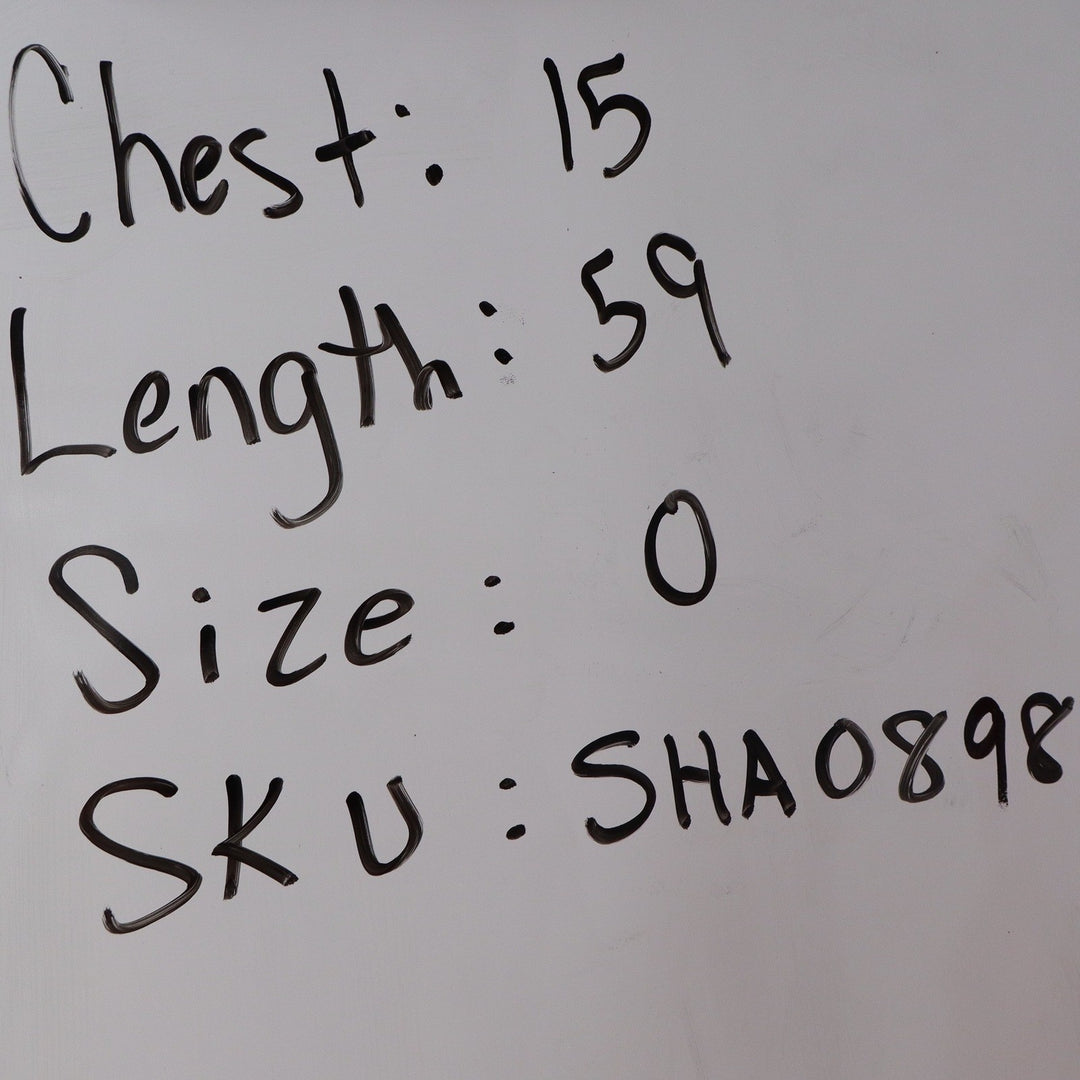 Chest: 15
Length: 59
Size: 0
SKU: SHA0898